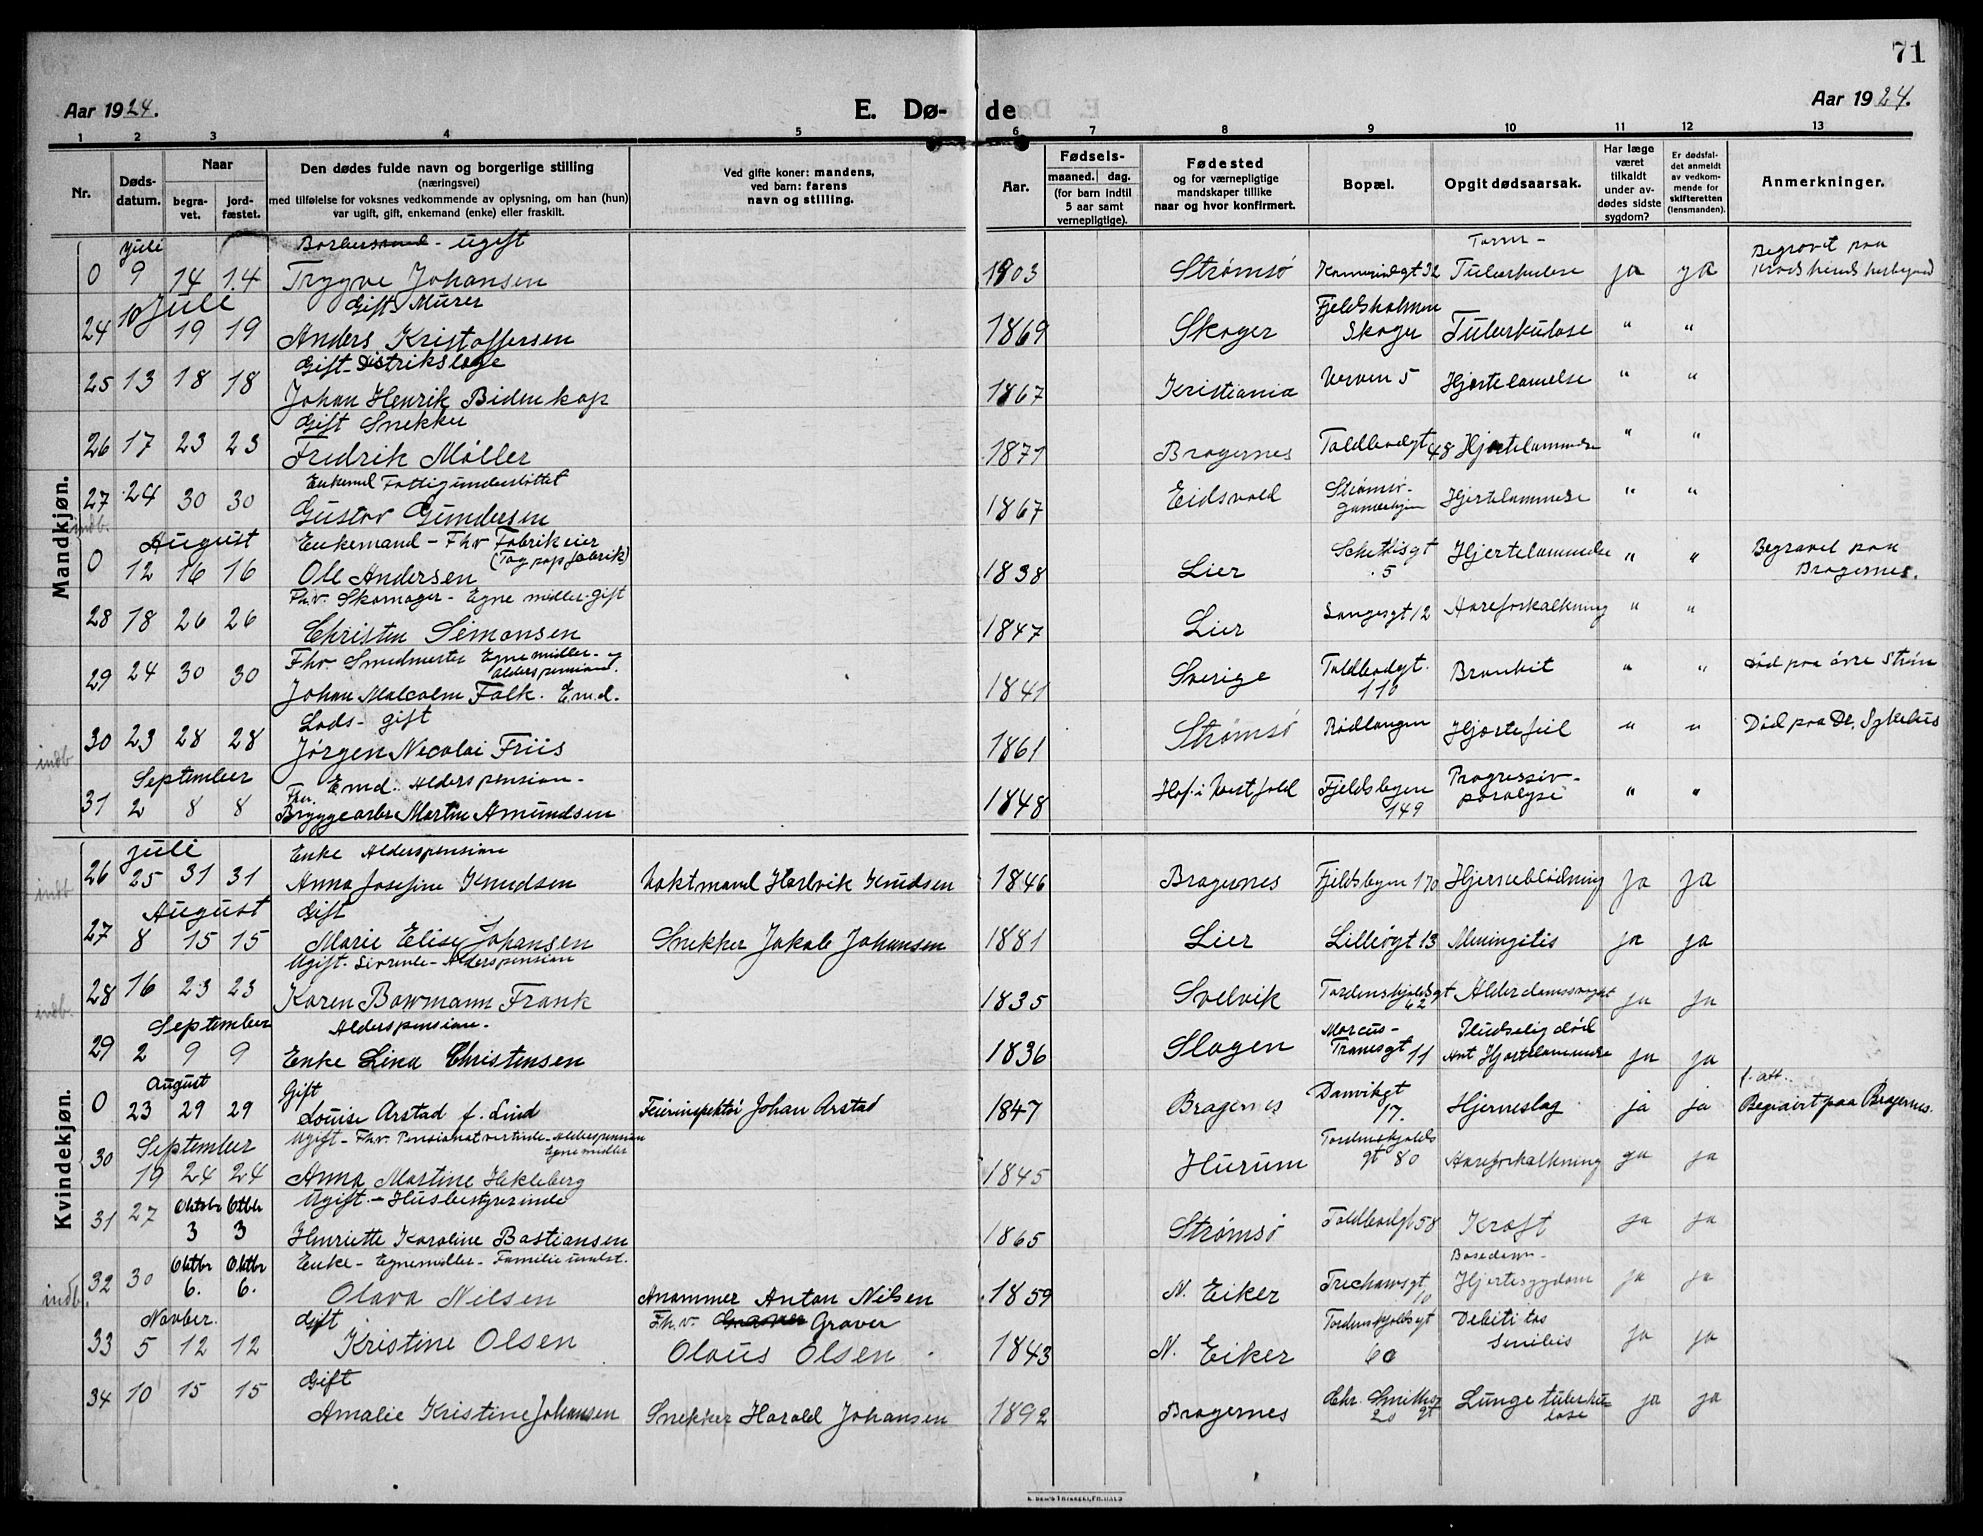 71
Aar 1924. E. Dø- de Aar 1924.
1 2 3 4 5 6 7 8 9 10 11 12 13
Nr. Døds-datum. Naar begra-vet. jord-fæstet. Den dødes fulde navn og borgerlige stilling (næringsvei) med tilføielse for voksnes vedkommende av oplysning, om han (hun) var ugift, gift, enkemand (enke) eller fraskilt. Ved gifte koner: mandens, ved barn: farens navn og stilling. Aar. Fødsels- maaned. dag. (for barn indtil 5 aar samt vernepligtige). Fødested og for værnepligtige mandskaper tillike naar og hvor konfirmert. Bopæl. Opgit dødsaarsak. Har læge været tilkaldt under av-dødes sidste sygdom? Er dødsfal-det anmeldt av vedkom-mende for skifteretten (lensmanden). Anmerkninger.
Mandkjøn.
Juli - ugift Tarm- Begravet paa
0 9 14 14 Trygve Johansen 1903 Strømsø Tuberkulose ja ja
10 Juli Gift Murer Fjeldsholmen
24 19 19 Anders Kristoffersen 1869 Skoger Skoger Tuberkulose " "
Gift Distrikslæge
25 13 18 18 Johan Henrik Bidenkap 1867 Kristiania Verven 5 Hjertelamelse " "
Gift Snekker
26 17 23 23 Fredrik Møller 1871 Bragernes Toldbodgt 48 Hjertelammelse " "
Enkemd Fattigunderstøttet Strømsø-
27 24 30 30 Gustav Gundersen 1867 Eidsvold Gamlehjem Hjertelammelse " "
indb.
August Enkemand - Fhv Fabrikeier (Tagpapfabrik) Begravet paa
0 12 16 16 Ole Andersen 1838 Lier 5 Hjertelammelse " " Bragernes.
Fhv. Skomager - Egne midler - gift
28 18 26 26 Christen Simonsen 1847 Lier Langesgt 12 Aareforkalkning " "
Fhv Smedmester Egne midler - og alderspension.
29 24 30 30 Johan Malcolm Falk. Emd. 1841 Sverige Toldbodgt. 116 Bronkit " " død paa øvre Strøm
Lods - gift
indb 30 23 28 28 Jørgen Nicolai Friis 1861 Strømsø Rødtangen Hjertefeil " " Død paa Dr. Sykehus
September Emd. Alderspension - Progressiv-
31 2 8 8 Fhv. Bryggearb. Martin Amundsen 1848 Hof i Vestfold Fjeldsbyen 149 paralyse " "
Kvindekjøn.
Juli Enke Alderspension
indb 26 25 31 31 Anna Josefine Knudsen Vaktmand Hartvik Knudsen 1846 Bragernes Fjeldsbyen 170 Hjerneblødning ja ja
August Gift
27 8 15 15 Marie Elise Johansen Snekker Jakob Johansen 1881 Lier Lilleøgt 13 Meningitis ja ja
Ugift - Livrente - Alderspension
indb. 28 16 23 23 Karen Bowmann Frank 1835 Svelvik Tordenskjoldsgt 62 Alderdomssvaghet ja ja
September Alderspension. Marcus- Pludselig død
29 2 9 9 Enke Lina Christensen 1836 Slagen Tranesgt 11 Ant Hjertelammelse ja ja
August Gift Danvikgt f. att.
0 23 29 29 Louise Arstad f. Lind Feierinspektør Johan Arstad 1847 Bragernes 17. Hjerneslag ja ja Begravet paa Bragernes.
September Ugift - Fhv. Pensionatvertinde - Alderspension Egne midler Tordenskjolds
30 19 24 24 Anna Martine Hekleberg 1845 Hurum gt 80 Aareforkalkning ja ja
Oktbr Oktbr Ugift - Husbestyrerinde
31 27 3 3 Henriette Karoline Bastiansen 1865 Strømsø Toldbodgt 58 Kræft ja ja
Oktbr Oktbr Enke - Egnemidler - Familie underst. Basedows-
indb. 32 30 6. 6. Olava Nilsen Anton Nilsen 1859 N. Eiker 10 Hjertesygdom ja ja
Novber. Gift Fhv. Graver Tordenskjoldsgt Debilitas
33 5 12 12 Kristine Olsen Olaus Olsen 1843 N. Eiker 60 Senilis ja ja
Gift
34 10 15 15 Amalie Kristine Johansen Snekker Harald Johansen 1892 Bragernes Chr. Smithsgt 20 Lungetuberkulose ja ja